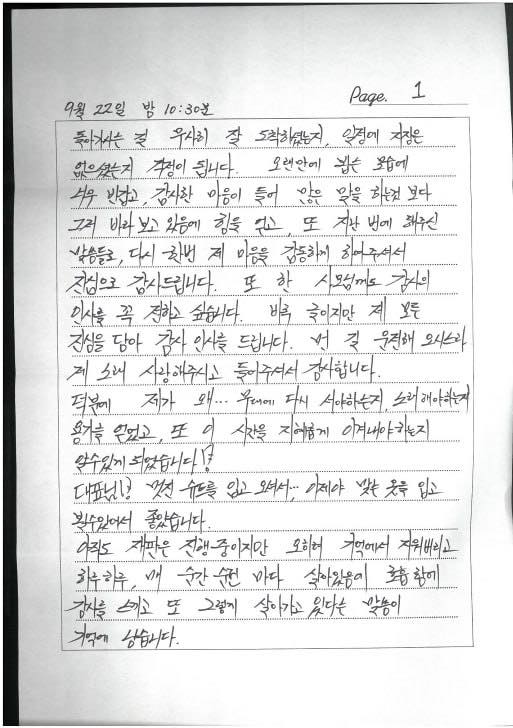 9월 22일 밤 10:30분 Page. 1
돌아가시는 길 무사히 잘 도착하셨는지, 일정에 지장은
없으셨는지 걱정이 됩니다. 오랜만에 뵙는 모습에
너무 반갑고, 감사한 마음이 들어 많은 말을 하는것 보다
그저 바라보고 있음에 힘을 얻고, 또 지난 번에 해주신
말씀들로, 다시 한번 제 마음을 감동하게 하여주셔서
진심으로 감사드립니다. 또 한 사모님께도 감사의
인사를 꼭 전하고 싶습니다. 비록 글이지만 제 모든
진심을 담아 감사 인사를 드립니다. 먼 길 운전해 오시느라
제 노래 사랑해주시고 들어주셔서 감사합니다.
덕분에 제가 왜... 무대에 다시 서야하는지, 노래해야하는지
용기를 얻었고, 또 이 시간을 지혜롭게 이겨내야하는지
알수있게 되었습니다!?
대표님!? 멋진 슈트를 입고 오셔서... 이제야 맞는 옷을 입고
뵐수있어서 좋았습니다.
아직도 재판은 진행중이지만 오히려 기억에서 지워버리고
하루하루, 매 순간 순간 마다 살아있음에 호흡함에
감사를 느끼고 또 그렇게 살아가고 있다는 말씀이
기억에 남습니다.